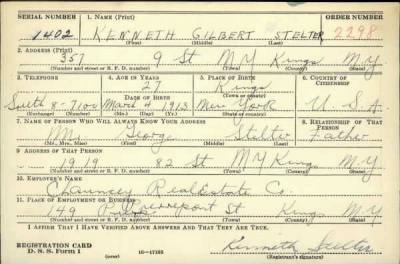 SERIAL NUMBER 1. NAME (Print) ORDER NUMBER
1402 KENNETH GILBERT STELTER 2298
(First) (Middle) (Last)
2. ADDRESS (Print)
357 9 St N Y Kings N.Y
(Number and street or R. F. D. number) (Town) (County) (State)
3. TELEPHONE 4. AGE IN YEARS 5. PLACE OF BIRTH 6. COUNTRY OF CITIZENSHIP
27 Kings
DATE OF BIRTH (Town or county)
South 8-7100 March 4 1913 New York U.S.A.
(Exchange) (Number) (Mo.) (Day) (Yr.) (State or country)
7. NAME OF PERSON WHO WILL ALWAYS KNOW YOUR ADDRESS 8. RELATIONSHIP OF THAT PERSON
Mr. George Stelter Father
(Mr., Mrs., Miss) (First) (Middle) (Last)
9. ADDRESS OF THAT PERSON
1919 82 St N Y King N-Y
(Number and street or R. F. D. number) (Town) (County) (State)
10. EMPLOYER'S NAME
Chauncey Real Estate Co.
11. PLACE OF EMPLOYMENT OR BUSINESS
149 Pierrepont St Kings N.Y
(Number and street or R. F. D. number) (Town) (County) (State)
I AFFIRM THAT I HAVE VERIFIED ABOVE ANSWERS AND THAT THEY ARE TRUE.
REGISTRATION CARD
D. S. S. Form 1 (over) 16—17105 Kenneth Stelter
(Registrant's signature)